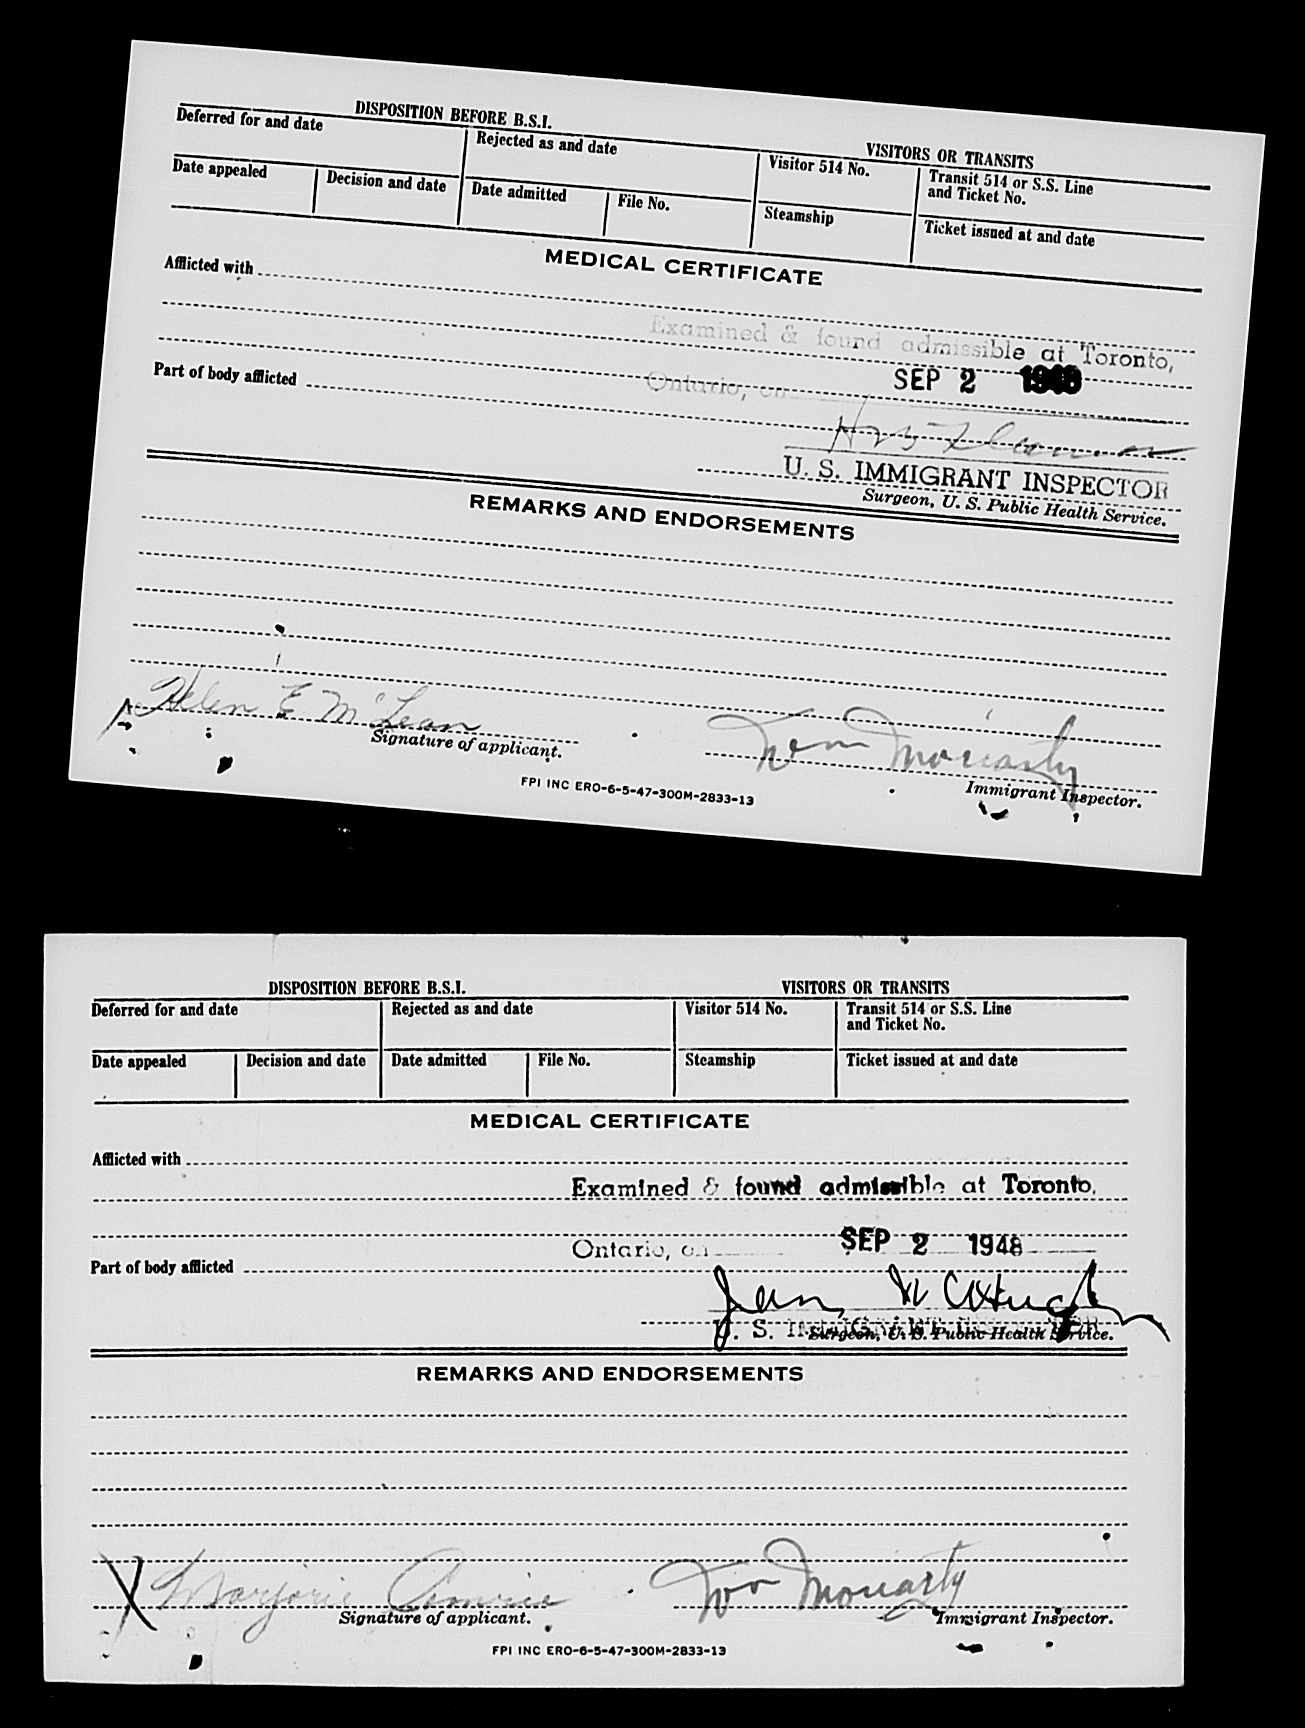 DISPOSITION BEFORE B.S.I.
VISITORS OR TRANSITS
Deferred for and date
Rejected as and date
Visitor 514 No.
Transit 514 or S.S. Line
and Ticket No.
Date appealed
Decision and date
Date admitted
File No.
Steamship
Ticket issued at and date
MEDICAL CERTIFICATE
Afflicted with
Examined & found admissible at Toronto,
Part of body afflicted
Ontario, on SEP 2 1948
U. S. IMMIGRANT INSPECTOR
Surgeon, U. S. Public Health Service.
REMARKS AND ENDORSEMENTS
Helen E McLean
Moriarty
Signature of applicant.
Immigrant Inspector.
FPI INC ERO-6-5-47-300M-2833-13
DISPOSITION BEFORE B.S.I.
VISITORS OR TRANSITS
Deferred for and date
Rejected as and date
Visitor 514 No.
Transit 514 or S.S. Line
and Ticket No.
Date appealed
Decision and date
Date admitted
File No.
Steamship
Ticket issued at and date
MEDICAL CERTIFICATE
Afflicted with
Examined & found admissible at Toronto,
Ontario, on SEP 2 1948
Part of body afflicted
U. S. IMMIGRANT INSPECTOR
Surgeon, U. S. Public Health Service.
REMARKS AND ENDORSEMENTS
X Marjorie
Moriarty
Signature of applicant.
Immigrant Inspector.
FPI INC ERO-6-5-47-300M-2833-13